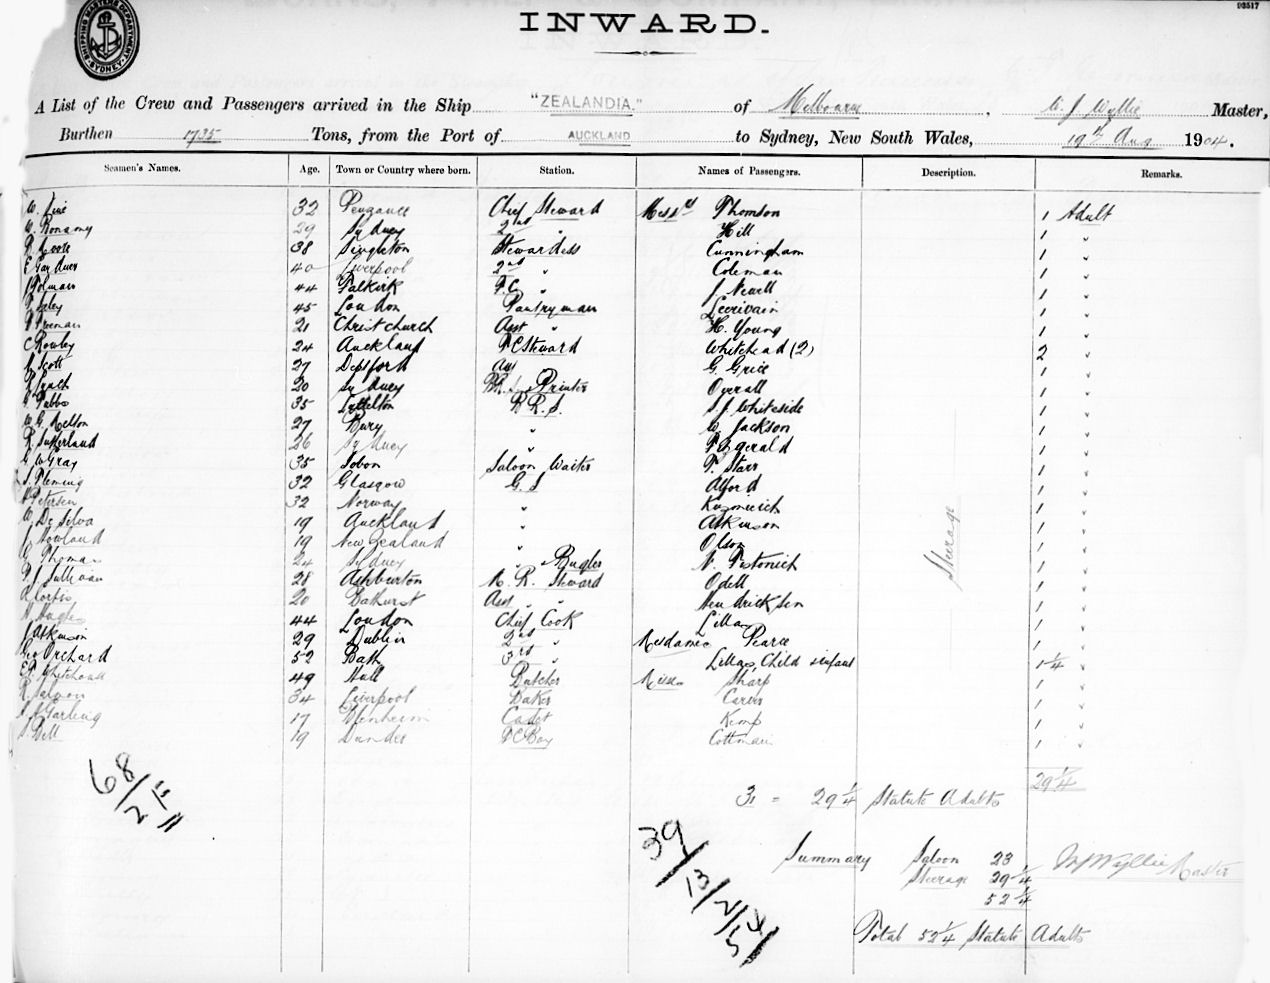 93517
SHIPPING MASTERS DEPARTMENT SYDNEY
INWARD.
A List of the Crew and Passengers arrived in the Ship "ZEALANDIA." of Melbourne, W. J. Wyllie Master,
Burthen 1735 Tons, from the Port of AUCKLAND to Sydney, New South Wales, 19th Aug 1904.
Seamen's Names. Age. Town or Country where born. Station. Names of Passengers. Description. Remarks.
32 Penzance Chief Steward Messrs Thomson 1 Adult
W. Bonamy 29 Sydney 2nd " Hill 1 "
38 Singleton Stewardess Cunningham 1 "
40 Liverpool 2nd " Coleman 1 "
44 Falkirk F.C. " J. Newell 1 "
45 London Pantryman Lecrivain 1 "
21 Christchurch Asst " H. Young 1 "
C Rowley 24 Auckland Steward Whitehead (2) 2 "
Scott 27 Deptford Ass G. Grice 1 "
Lynch 20 Sydney Printer Overall 1 "
35 Lyttelton R.R.S. S. J. Whiteside 1 "
W. G. Nelson 27 Bury " W. Jackson 1 "
R. Sutherland 26 Sydney " Fitzgerald 1 "
G W Gray 35 Saloon Waiter P. Starr 1 "
S. Fleming 32 Glasgow G. S Alford 1 "
Petersen 32 Norway " 1 "
W. De Silva 19 Auckland " Atkinson 1 "
J Howland 19 New Zealand " Olson 1 "
G Thomas 24 Sydney " Bugler 1 "
P. J. Sullivan 28 Ashburton Steward Odell 1 "
20 Bathurst Asst " " Hendricksen 1 "
H Hughes 44 London Chief Cook Lillas 1 "
J Atkinson 29 Dublin 2nd " Mesdames Pearce 1 "
Geo Orchard 52 Bath 3rd " Lillas, Child & infant 1 1/4 "
Whitehouse 49 Hull Butcher Misses Sharp 1 "
34 Liverpool Baker Carver 1 "
Garling 17 Blenheim Cadet Kemp 1 "
Bell 19 Dundee Boy 1 "
Steerage
29 1/4
31 = 29 1/4 Statute Adults
68/2
39/13/2/
Summary Saloon 23
Steerage 29 1/4
52 1/4
W J Wyllie Master
Total 52 1/4 Statute Adults